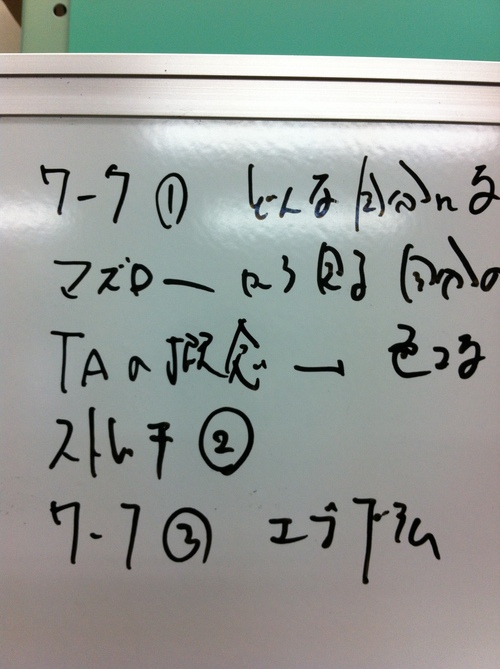 ワーク① どんな自分になる
マズローから見る自分の
TAの概念 →
ストレッチ②
ワーク③ エゴグラム